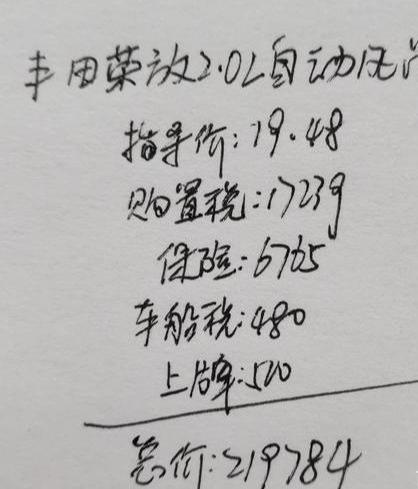 丰田荣放2.0L自动风
指导价:19.48
购置税:17239
保险:6765
车船税:480
上牌:500
总价:219784